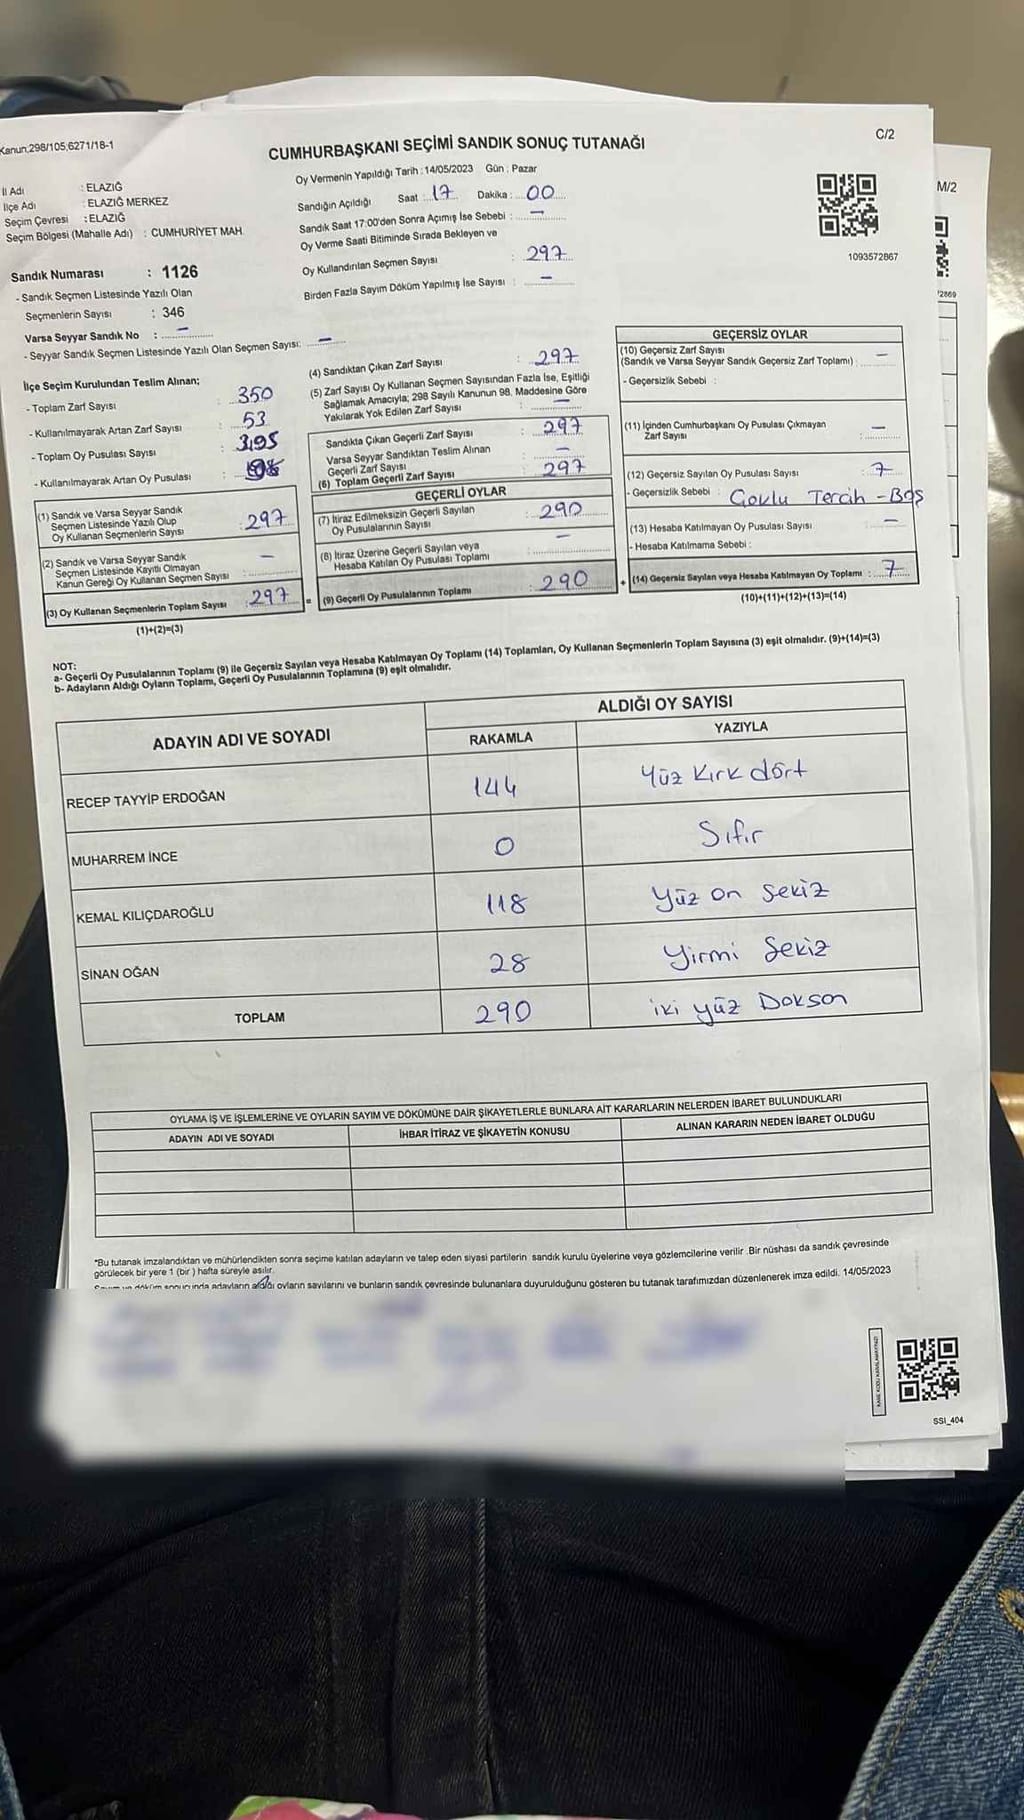 Kanun;298/105;6271/18-1
C/2
CUMHURBAŞKANI SEÇİMİ SANDIK SONUÇ TUTANAĞI
İl Adı : ELAZIĞ
İlçe Adı : ELAZIĞ MERKEZ
Seçim Çevresi : ELAZIĞ
Seçim Bölgesi (Mahalle Adı) : CUMHURİYET MAH
Sandık Numarası : 1126
- Sandık Seçmen Listesinde Yazılı Olan
Seçmenlerin Sayısı : 346
Varsa Seyyar Sandık No : –
- Seyyar Sandık Seçmen Listesinde Yazılı Olan Seçmen Sayısı: –
Oy Vermenin Yapıldığı Tarih : 14/05/2023 Gün : Pazar
Sandığın Açıldığı Saat : 17 Dakika : 00
Sandık Saat 17:00'den Sonra Açımış İse Sebebi : –
Oy Verme Saati Bitiminde Sırada Bekleyen ve
Oy Kullandırılan Seçmen Sayısı : 297
Birden Fazla Sayım Döküm Yapılmış İse Sayısı : –
1093572867
M/2
İlçe Seçim Kurulundan Teslim Alınan;
- Toplam Zarf Sayısı : 350
- Kullanılmayarak Artan Zarf Sayısı : 53
- Toplam Oy Pusulası Sayısı : 395
- Kullanılmayarak Artan Oy Pusulası :
(1) Sandık ve Varsa Seyyar Sandık
Seçmen Listesinde Yazılı Olup
Oy Kullanan Seçmenlerin Sayısı : 297
(2) Sandık ve Varsa Seyyar Sandık
Seçmen Listesinde Kayıtlı Olmayan
Kanun Gereği Oy Kullanan Seçmen Sayısı : –
(3) Oy Kullanan Seçmenlerin Toplam Sayısı : 297
(1)+(2)=(3)
(4) Sandıktan Çıkan Zarf Sayısı : 297
(5) Zarf Sayısı Oy Kullanan Seçmen Sayısından Fazla İse, Eşitliği
Sağlamak Amacıyla; 298 Sayılı Kanunun 98. Maddesine Göre
Yakılarak Yok Edilen Zarf Sayısı : –
Sandıkta Çıkan Geçerli Zarf Sayısı : 297
Varsa Seyyar Sandıktan Teslim Alınan
Geçerli Zarf Sayısı : –
(6) Toplam Geçerli Zarf Sayısı : 297
GEÇERLİ OYLAR
(7) İtiraz Edilmeksizin Geçerli Sayılan
Oy Pusulalarının Sayısı : 290
(8) İtiraz Üzerine Geçerli Sayılan veya
Hesaba Katılan Oy Pusulası Toplamı : –
= (9) Geçerli Oy Pusulalarının Toplamı : 290
GEÇERSİZ OYLAR
(10) Geçersiz Zarf Sayısı
(Sandık ve Varsa Seyyar Sandık Geçersiz Zarf Toplamı) : –
- Geçersizlik Sebebi :
(11) İçinden Cumhurbaşkanı Oy Pusulası Çıkmayan
Zarf Sayısı : –
(12) Geçersiz Sayılan Oy Pusulası Sayısı : 7
- Geçersizlik Sebebi : Çoklu Tercih - Boş
(13) Hesaba Katılmayan Oy Pusulası Sayısı : –
- Hesaba Katılmama Sebebi :
+ (14) Geçersiz Sayılan veya Hesaba Katılmayan Oy Toplamı : 7
(10)+(11)+(12)+(13)=(14)
NOT:
a- Geçerli Oy Pusulalarının Toplamı (9) ile Geçersiz Sayılan veya Hesaba Katılmayan Oy Toplamı (14) Toplamları, Oy Kullanan Seçmenlerin Toplam Sayısına (3) eşit olmalıdır. (9)+(14)=(3)
b- Adayların Aldığı Oyların Toplamı, Geçerli Oy Pusulalarının Toplamına (9) eşit olmalıdır.
ADAYIN ADI VE SOYADI
ALDIĞI OY SAYISI
RAKAMLA YAZIYLA
RECEP TAYYİP ERDOĞAN 144 Yüz Kırk dört
MUHARREM İNCE 0 Sıfır
KEMAL KILIÇDAROĞLU 118 Yüz on sekiz
SİNAN OĞAN 28 Yirmi Sekiz
TOPLAM 290 iki yüz Doksan
OYLAMA İŞ VE İŞLEMLERİNE VE OYLARIN SAYIM VE DÖKÜMÜNE DAİR ŞİKAYETLERLE BUNLARA AİT KARARLARIN NELERDEN İBARET BULUNDUKLARI
ADAYIN ADI VE SOYADI İHBAR İTİRAZ VE ŞİKAYETİN KONUSU ALINAN KARARIN NEDEN İBARET OLDUĞU
*Bu tutanak imzalandıktan ve mühürlendikten sonra seçime katılan adayların ve talep eden siyasi partilerin sandık kurulu üyelerine veya gözlemcilerine verilir .Bir nüshası da sandık çevresinde
görülecek bir yere 1 (bir ) hafta süreyle asılır.
Sayım ve döküm sonucunda adayların aldığı oyların sayılarını ve bunların sandık çevresinde bulunanlara duyurulduğunu gösteren bu tutanak tarafımızdan düzenlenerek imza edildi. 14/05/2023
SSI_404